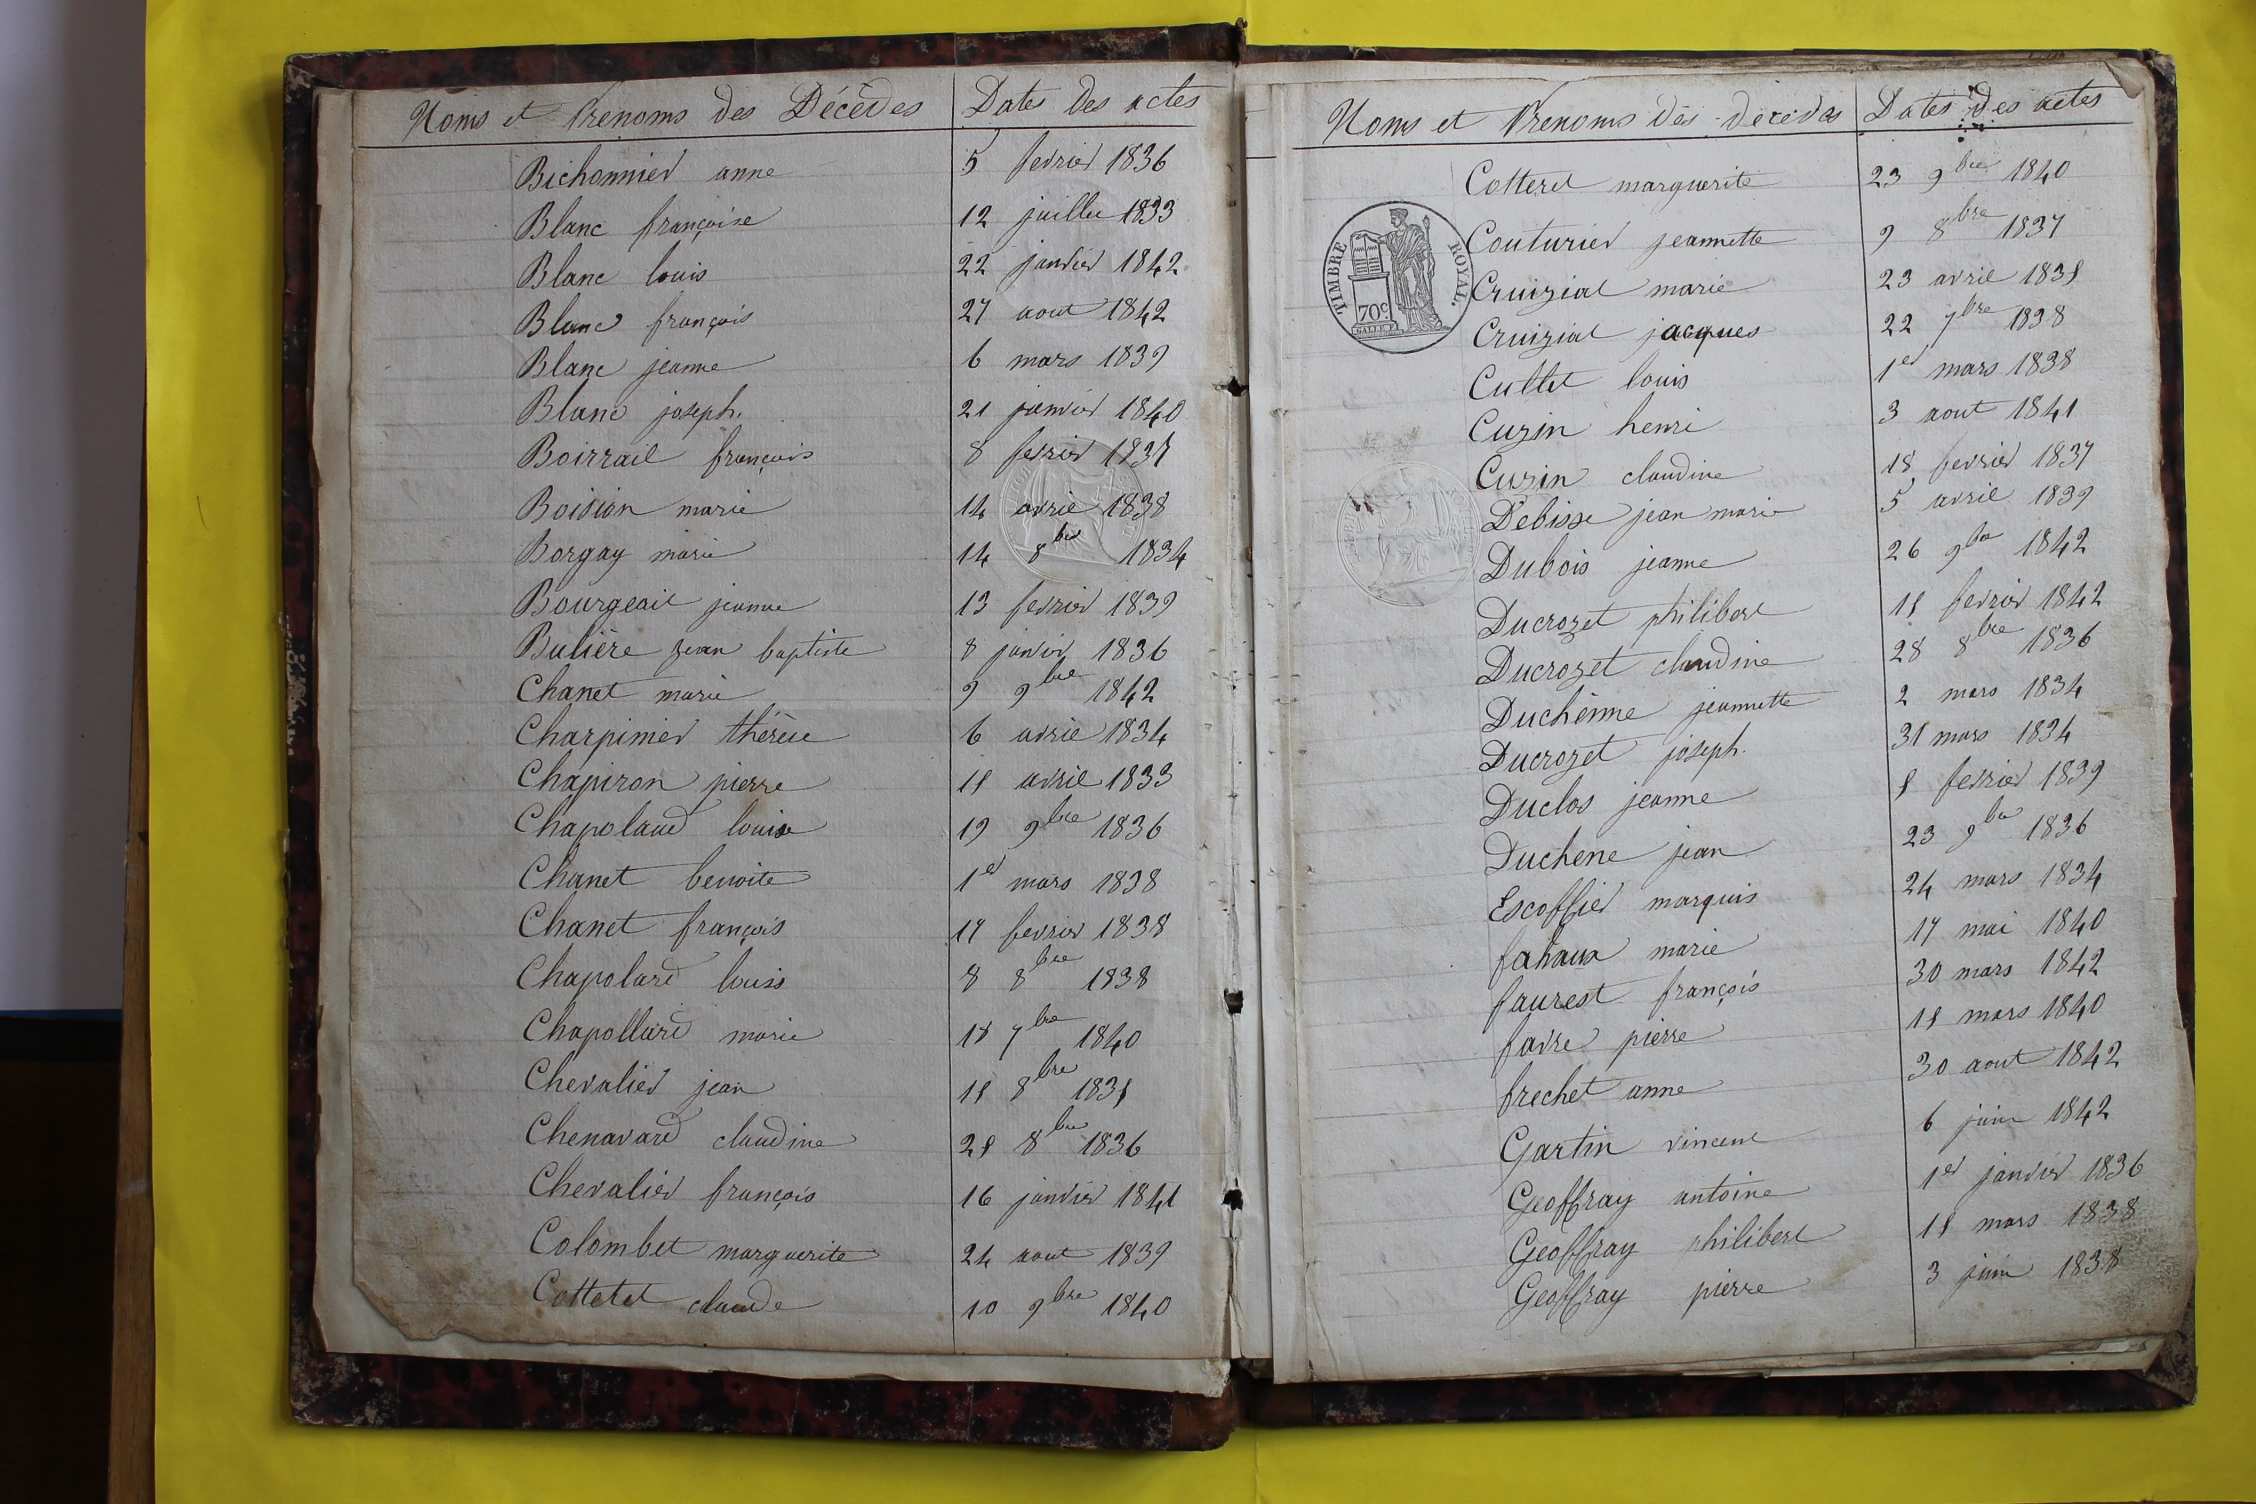 Noms et Prenoms des Décèdes Dates des actes
Bichonnier anne 5 fevrier 1836
Blanc françoise 12 juillet 1833
Blanc louis 22 janvier 1842
Blanc françois 27 aout 1842
Blanc jeanne 6 mars 1839
Blanc joseph. 21 janvier 1840
Boirrail françois 8 fevrier 1837
Boision marie 14 avril 1838
Borgay marie 14 8bre 1834
Bourgeail jeanne 13 fevrier 1839
Bulière jean baptiste 8 janvier 1836
Chanet marie 9 9bre 1842
Charpinier thérèse 6 avril 1834
Chapiron pierre 18 avril 1833
Chapolard louise 19 9bre 1836
Chanet benoite 1er mars 1838
Chanet françois 17 fevrier 1838
Chapolard louis 8 8bre 1838
Chapollard marie 18 7bre 1840
Chevalier jean 18 8bre 1838
Chenavard claudine 28 8bre 1836
Chevalier françois 16 janvier 1841
Colombet marguerite 24 aout 1839
Cottetet claude 10 9bre 1840
Noms et Prenoms des décèdes Dates des actes
Cotteret marguerite 23 9bre 1840
Couturier jeannette 9 8bre 1837
Cruizial marie 23 avril 1838
Cruizial jacques 22 7bre 1838
Cultet louis 1er mars 1838
Cuzin henri 3 aout 1841
Cuzin claudine 18 fevrier 1837
Debisse jean marie 5 avril 1839
Dubois jeanne 26 9bre 1842
Ducrozet philibert 18 fevrier 1842
Ducrozet claudine 28 8bre 1836
Duchènne jeannette 2 mars 1834
Ducrozet joseph. 31 mars 1834
Duclos jeanne 8 fevrier 1839
Duchene jean 23 9bre 1836
Escoffier marquis 24 mars 1834
fahaux marie 17 mai 1840
faurest françois 30 mars 1842
favre pierre 18 mars 1840
frechet anne 30 aout 1842
Gartin vincent 6 juin 1842
Geoffray antoine 1er janvier 1836
Geoffray philibert 18 mars 1838
Geoffray pierre 3 juin 1838
TIMBRE ROYAL.
70c